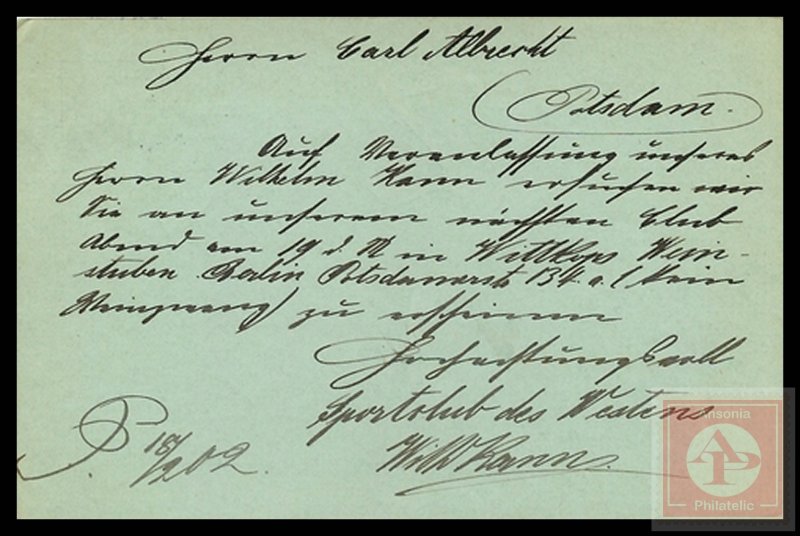 Herrn Carl Albrecht
Potsdam.
Auf Veranlassung unseres
Herrn Wilhelm Kann ersuchen wir
Sie an unserem nächsten Club
Abend am 19 d M in Wittkops Wein-
stuben Berlin Potsdamerstr 134 a. (kein
Weinzwang) zu erscheinen
Hochachtungsvoll
Sportclub des Westens
Wilh Kann.
18/902.
Ansonia
AP
Philatelic